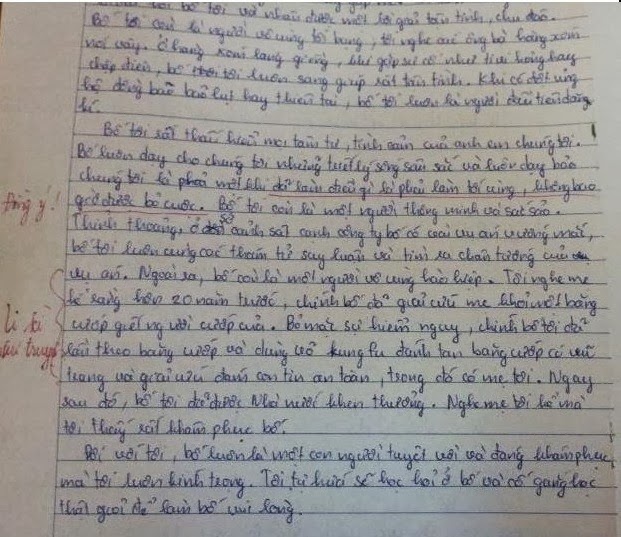 bố tôi với nhau được một lời giải tận tình, chu đáo.
Bố tôi còn là người vô cùng tốt bụng, tôi nghe các ông bà hàng xóm
nói vậy. Ở hàng xóm láng giềng, khi gặp sự cố như tivi hỏng hay
chập điện, bố tôi luôn sang giúp rất tận tình. Khi có đợt ủng
hộ đồng bào bão lụt hay thiên tai, bố tôi luôn là người đầu tiên đăng
kí.
Bố tôi rất thấu hiểu mọi tâm tư, tình cảm của anh em chúng tôi.
Bố luôn dạy cho chúng tôi những triết lý sống sâu sắc và luôn dạy bảo
chúng tôi là phải một khi đã làm điều gì là phải làm tới cùng, không bao
Đồng ý! giờ được bỏ cuộc. Bố tôi còn là một người thông minh và sắc sảo.
Thỉnh thoảng, ở sở cảnh sát cạnh công ty bố có vài vụ án vướng mắc,
bố tôi luôn cùng các thám tử suy luận và tìm ra chân tướng của
vụ án. Ngoài ra, bố còn là một người vô cùng hào hiệp. Tôi nghe mẹ
kể rằng hơn 20 năm trước, chính bố đã giải cứu mẹ khỏi một băng
Li kì cướp giết người cướp của. Bỏ mặc sự hiểm nguy, chính bố tôi đã
như truyện lần theo băng cướp và dùng võ kungfu đánh tan băng cướp có vũ
trang và giải cứu đám con tin an toàn, trong đó có mẹ tôi. Ngay
sau đó, bố tôi đã được Nhà nước khen thưởng. Nghe mẹ tôi kể mà
tôi thấy rất khâm phục bố.
Đối với tôi, bố luôn là một con người tuyệt vời và đáng khâm phục
mà tôi luôn kính trọng. Tôi tự hứa sẽ học hỏi ở bố và cố gắng học
thật giỏi để làm bố vui lòng.